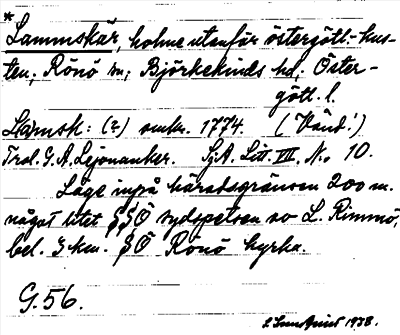 *
Lammskär, holme utanför östergötl.-kus-
ten; Rönö sn; Björkekinds hd; Öster-
götl. l.
Lamsk: (2) omkr. 1774. ('Vänd!')
Trol. G. A. Lejonanker. SjA. Litt. VII. No 10.
Läge inpå häradsgränsen 200 m.
något litet §§Ö sydspetsen av L. Rimmö,
bel. 3 km. §Ö Rönö kyrka.
G. 56.
1938.